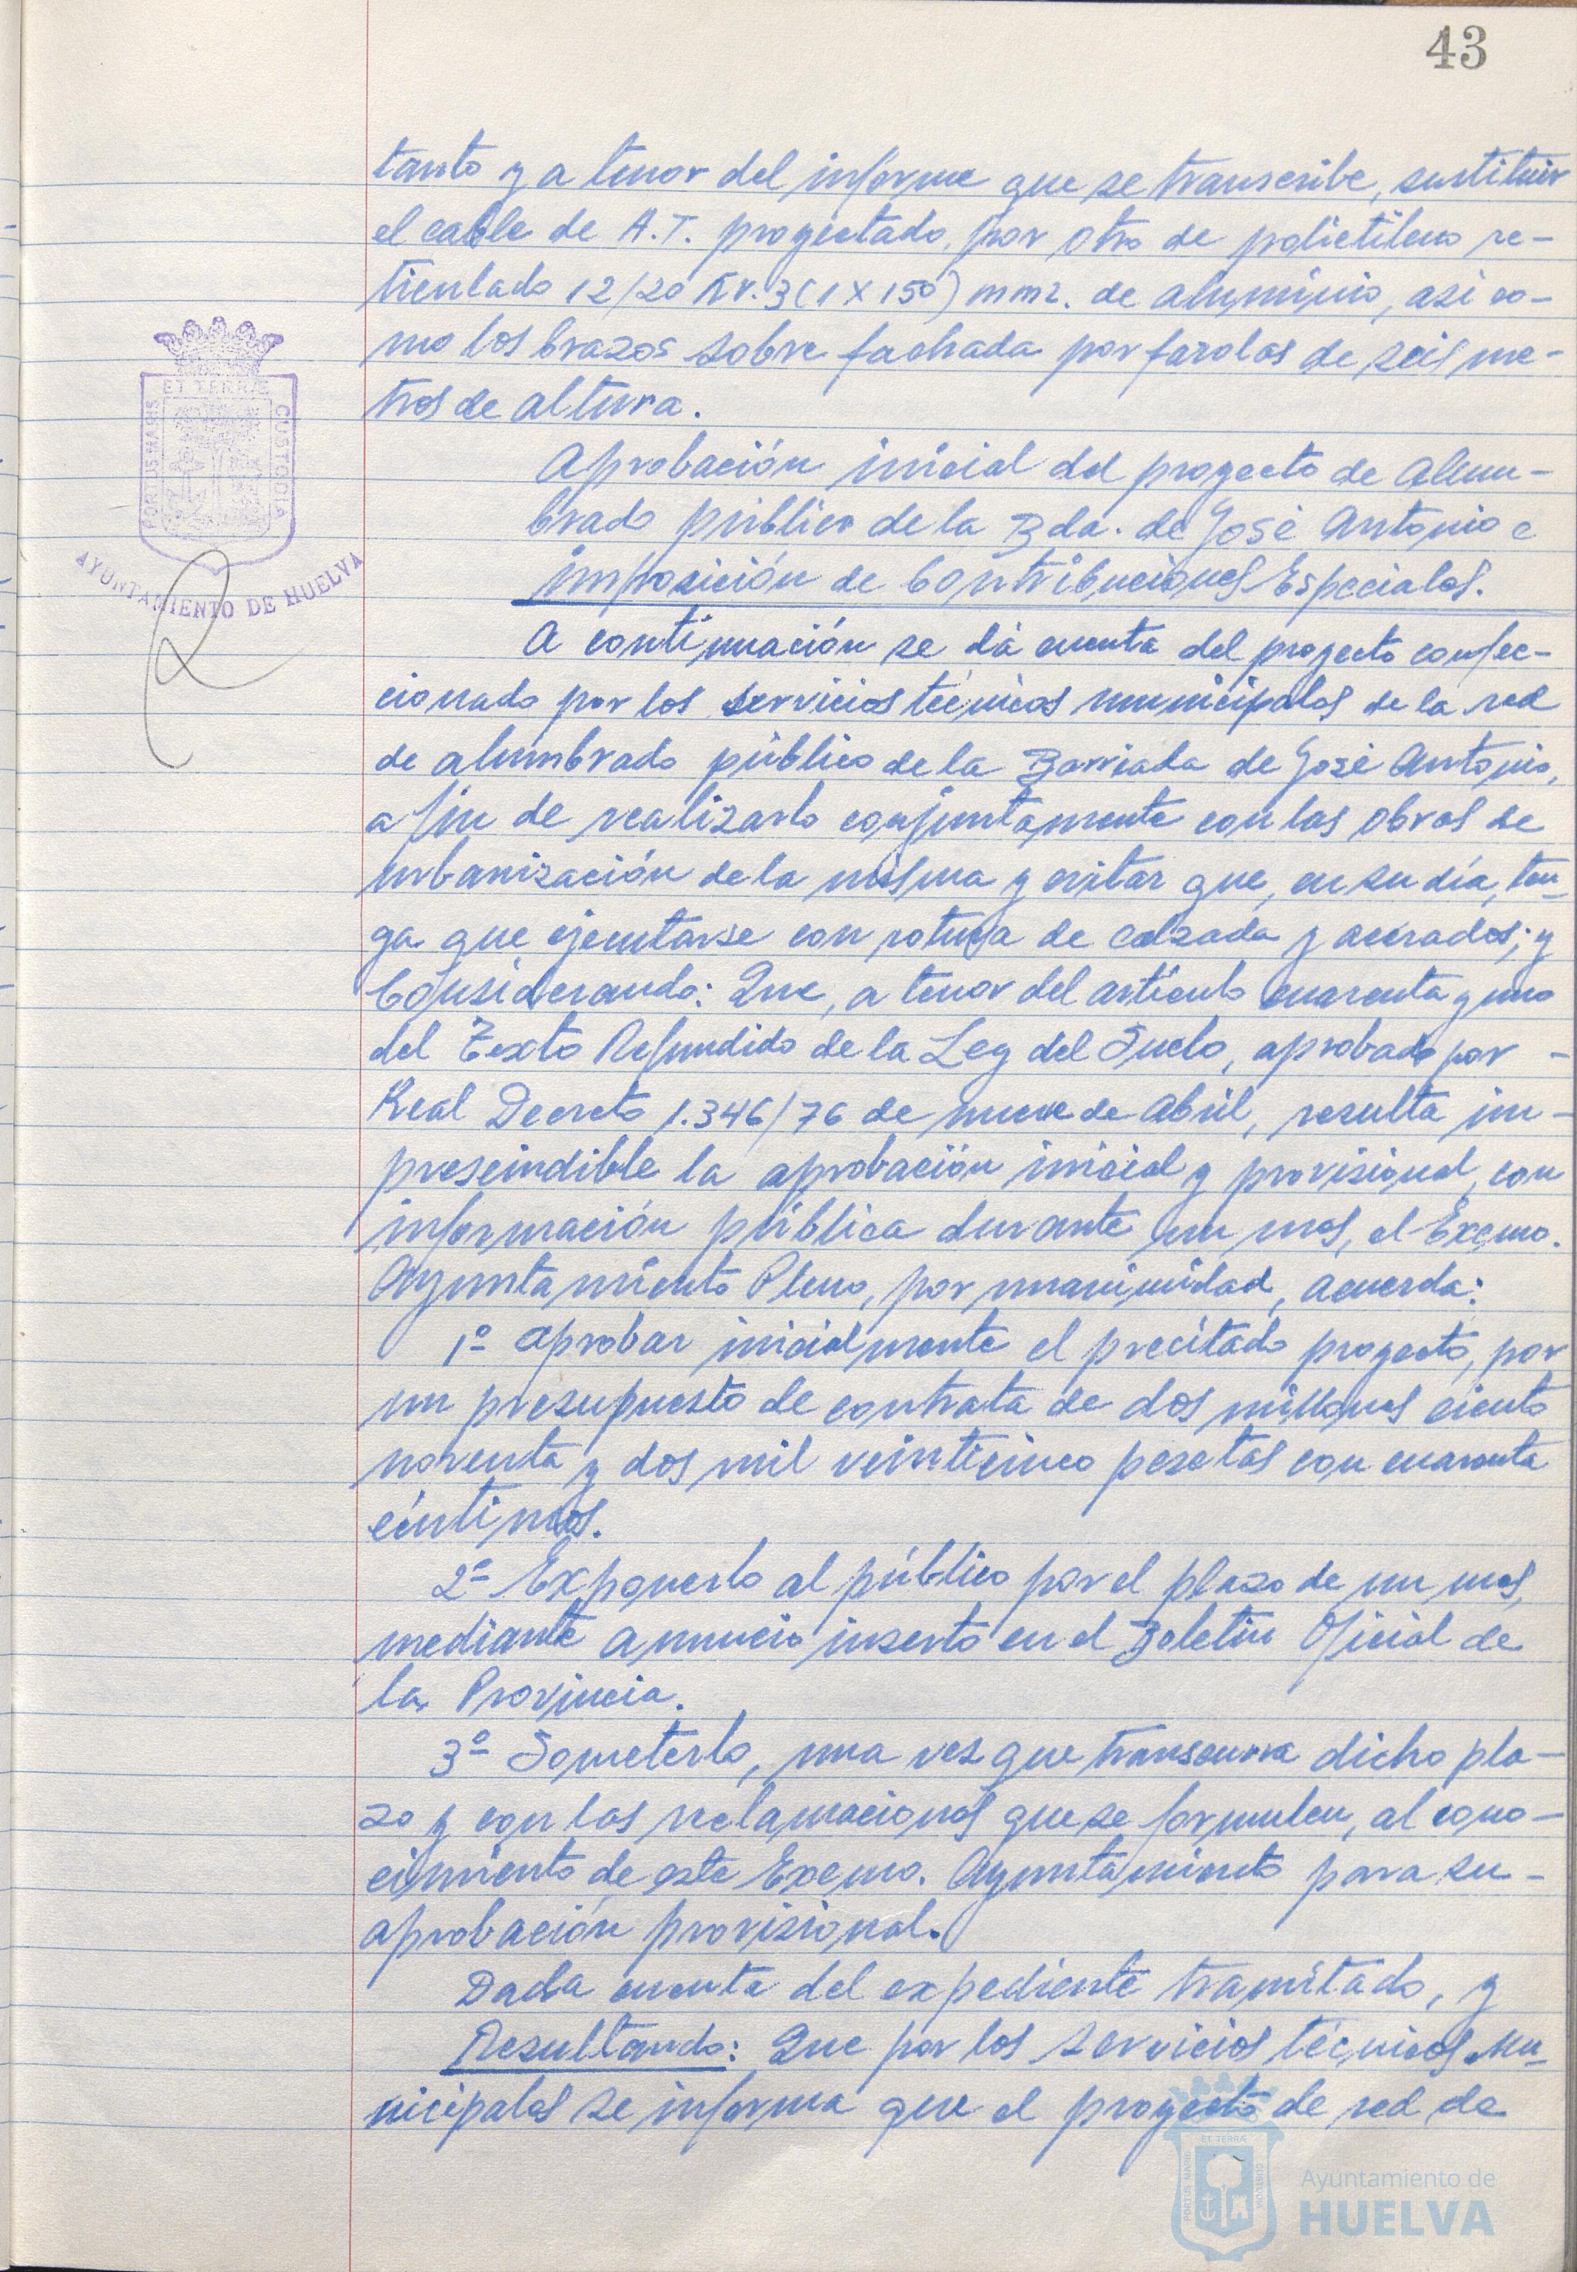 43
tanto y a tenor del informe que se transcribe, sustituir
el cable de A.T. proyectado, por otro de polietileno re-
ticulado 12/20 Kv. 3(1X150) mm2. de aluminio, asi co-
mo los brazos sobre fachada por farolas de seis me-
tros de altura.
Aprobación inicial del proyecto de Alum-
brado público de la Bda. de José Antonio e
imposición de Contribuciones Especiales.
A continuación se dá cuenta del proyecto confec-
cionado por los servicios técnicos municipales de la red
de alumbrado público de la Barriada de José Antonio,
a fin de realizarlo conjuntamente con las obras de
urbanización de la misma y evitar que, en su día, ten-
ga que ejecutarse con rotura de calzada y acerados; y
Considerando: Que, a tenor del artículo cuarenta y uno
del Texto Refundido de la Ley del Suelo, aprobado por -
Real Decreto 1.346/76 de nueve de Abril, resulta im-
prescindible la aprobación inicial y provisional, con
información pública durante un mes, el Excmo.
Ayuntamiento Pleno, por unanimidad, acuerda:
1º- Aprobar inicialmente el precitado proyecto, por
un presupuesto de contrata de dos millones ciento
noventa y dos mil veinticinco pesetas con cuarenta
céntimos.
2º- Exponerlo al público por el plazo de un mes,
mediante anuncio inserto en el Boletin Oficial de
la Provincia.
3º- Someterlo, una vez que transcurra dicho pla-
zo y con las reclamaciones que se formulen, al cono-
cimiento de este Excmo. Ayuntamiento para su -
aprobación provisional.
Dada cuenta del expediente tramitado, y
Resultando: Que por los servicios técnicos Mu-
nicipales se informa que el proyecto de red de
PORTUS MARIS
ET TERRÆ
CUSTODIA
AYUNTAMIENTO DE HUELVA
PORTUS MARIS
ET TERRÆ
CUSTODIA
Ayuntamiento de
HUELVA